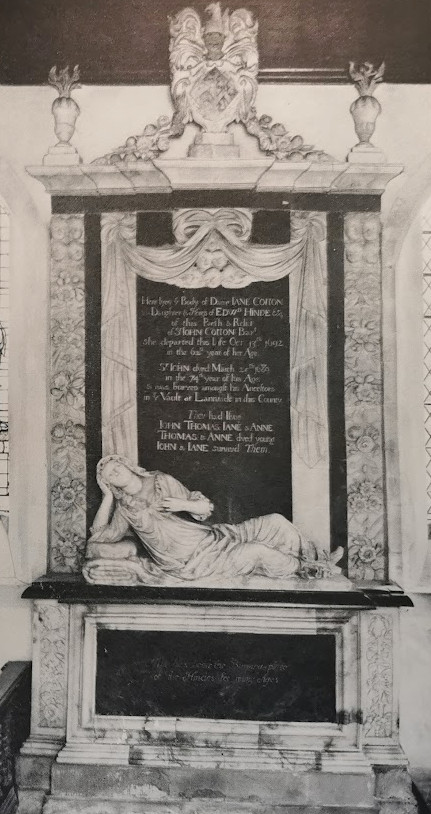 Here lyes yͤ Body of Dame IANE COTTON
Daughter & of EDWᴰ HINDE Esqʳ
of this Parish & Relict
of Sʳ IOHN COTTON Barᵗ
She departed this life Oct 1692
in the year of her Age.
Sʳ IOHN dyed March 1689
in the 74ᵗʰ year of his Age
& was buryed amongst his Ancestors
in yͤ Vault at Lannade in this County
They had Issue
IOHN THOMAS IANE & ANNE
THOMAS & ANNE dyed young
IOHN & IANE survived Them
the Burying place
of the Hindes for many Ages